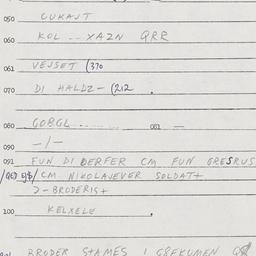 050 CUKAJT
060 KOL -- XAZN QRR
061 VEJSET (370
070 DI HALDZ - (212 .
080 GORGL ------ 081 —
090 -/-
091 FUN DI DERFER CM FUN GRESRUS
CM NIKOLAJEVER SOLDAT+
>-BRODERIS+
100 KELXELE .
BRODER S+AMES I GEFKUMEN